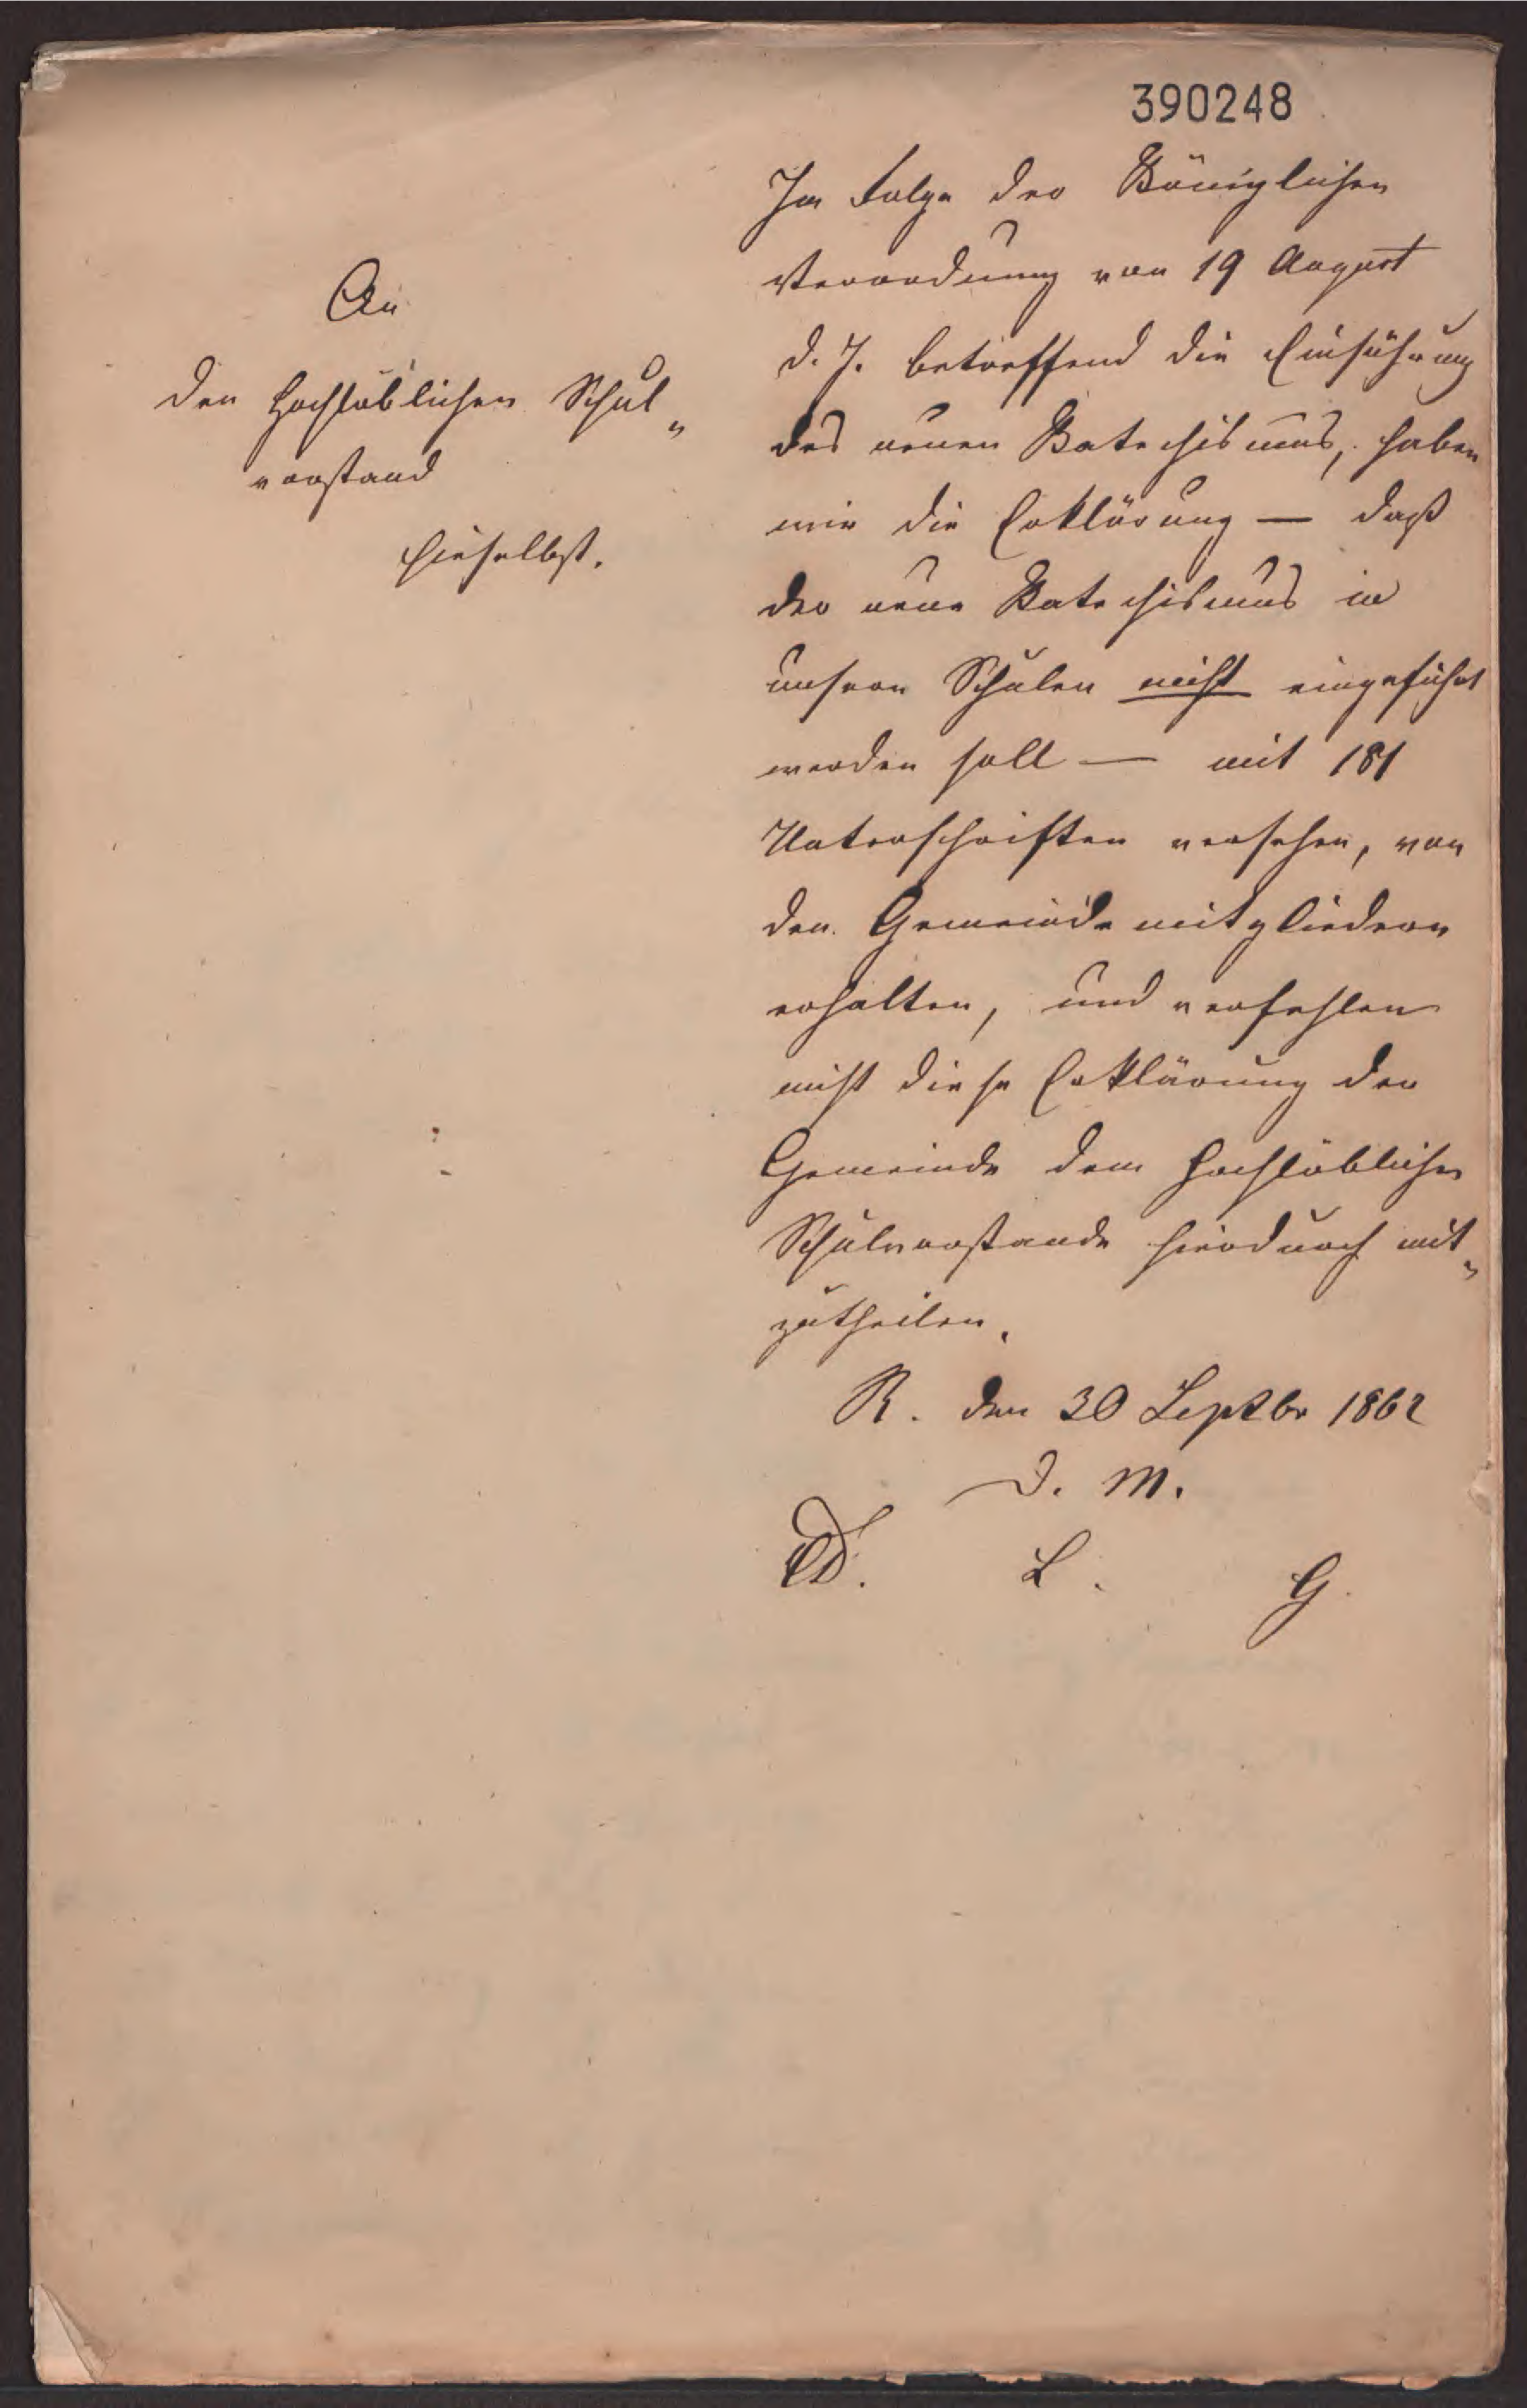 390248
An
den Hochlöblichen Schul„
vorstand
hieselbst.
In Folge der Königlichen
Verordnung von 19 August
d. J. betreffend die Einführung
des neuen Katechismus, haben
wir die Erklärung — daß
der neue Katechismus in
unsern Schulen nicht eingeführt
werden soll — mit 181
Unterschriften versehen, von
den Gemeindemitgliedern
erhalten, und verfehlen
nicht diese Erklärung der
Gemeinde dem Hochlöblichen
Schulvorstande hierdurch mit„
zutheilen.
R. den 30 Septbr 1862
D. M.
L. G.